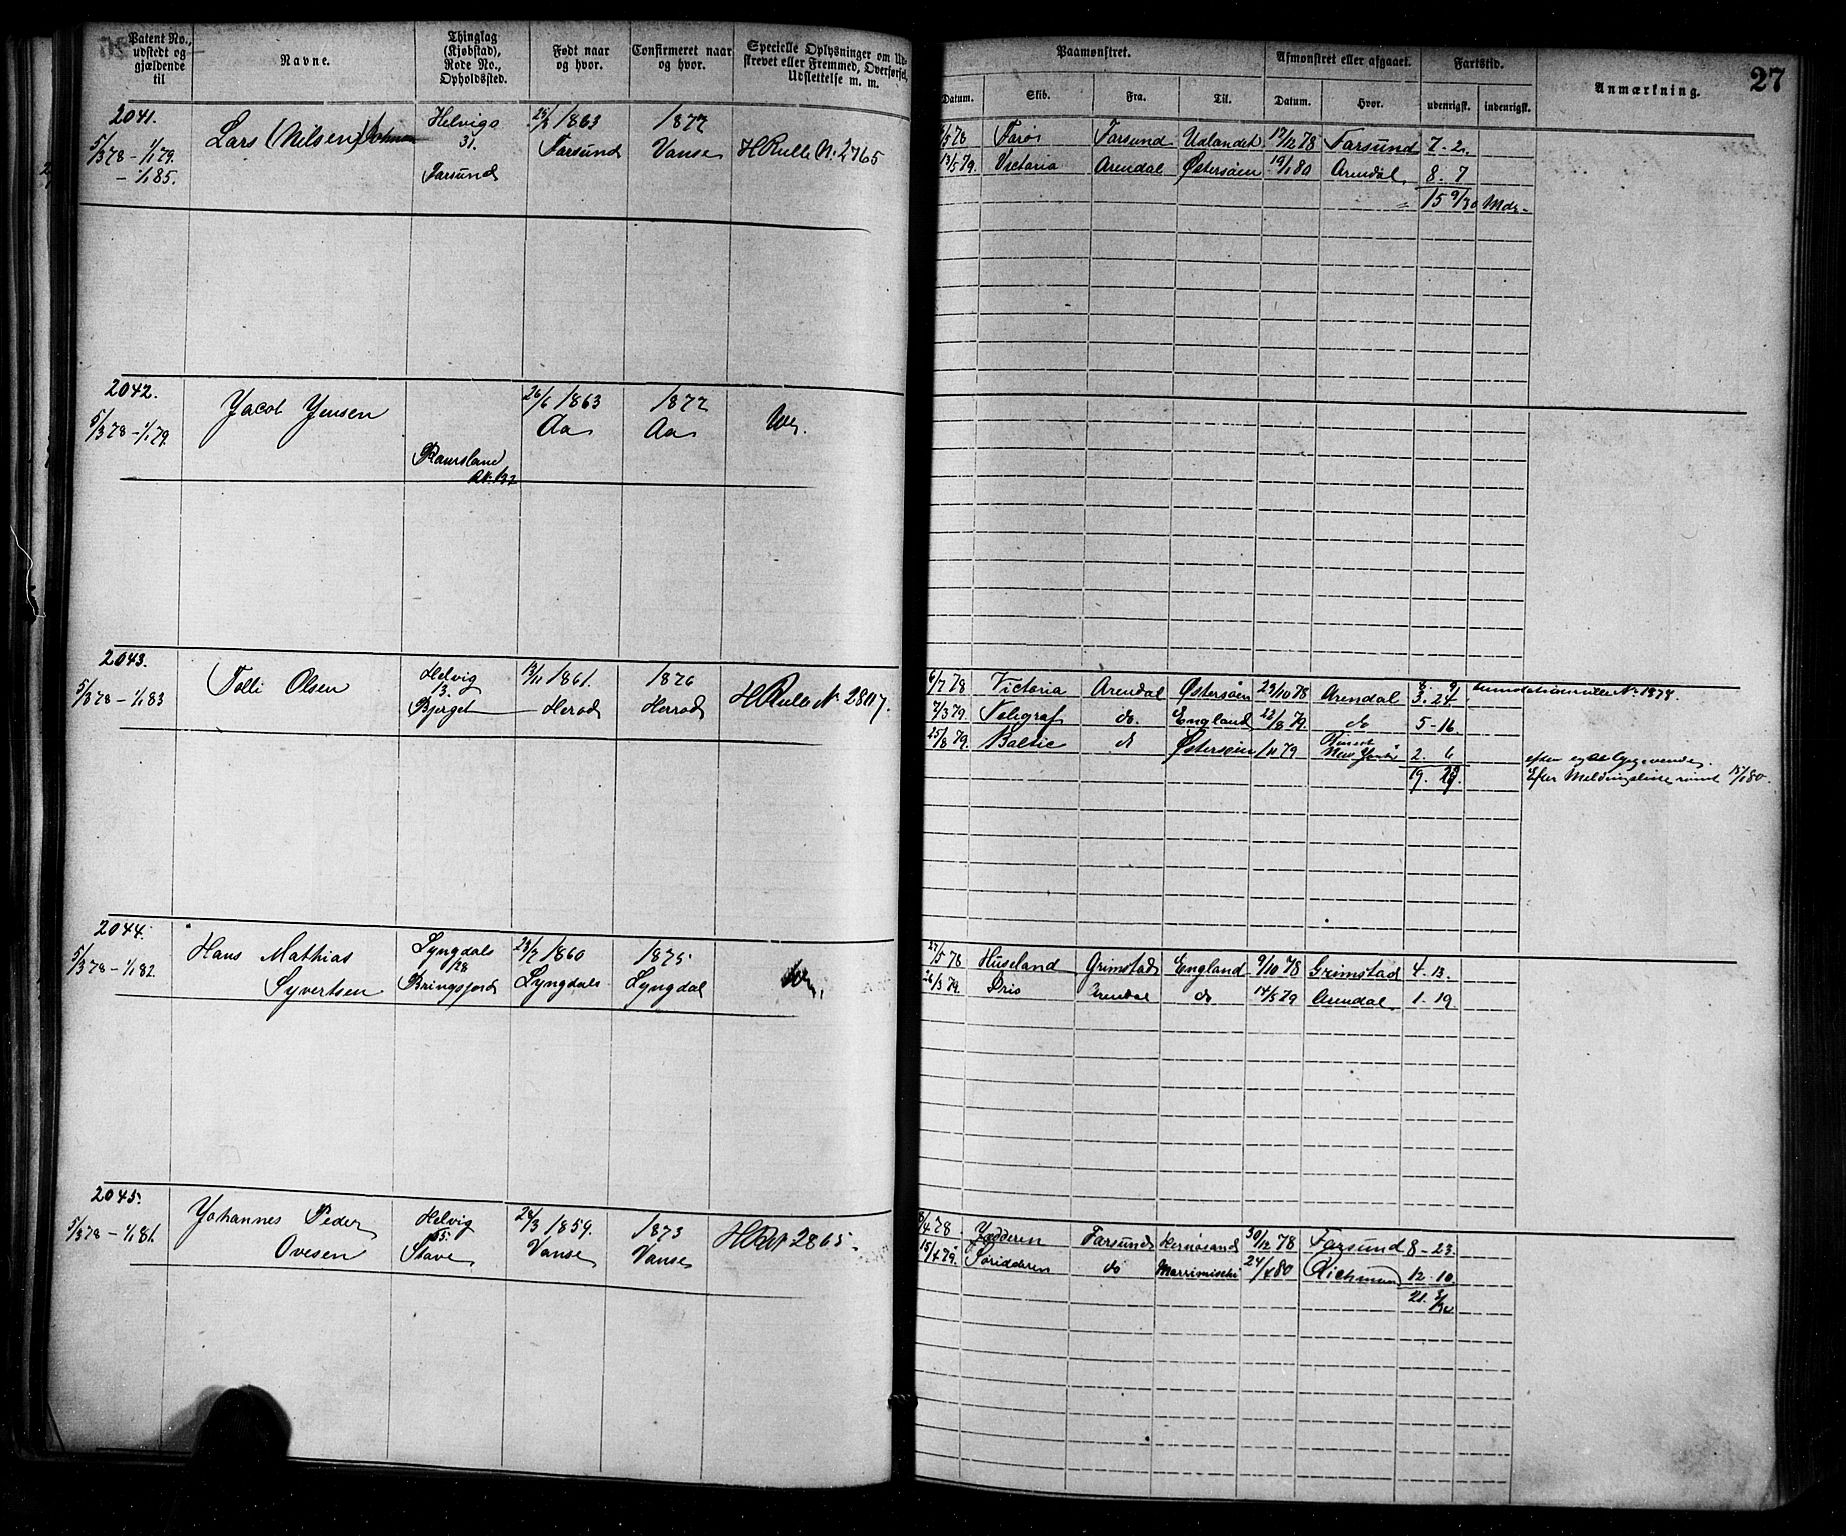 27
Patent No., udstedt og gjældende til
Navne.
Thinglag (Kjøbstad), Rode No., Opholdssted.
Født naar og hvor.
Confirmeret naar og hvor.
Specielle Oplysninger om Udskrevet eller Fremmed, Overførsel, Udslettelse m. m.
Paamønstret.
Afmønstret eller afgaaet.
Fartstid.
Anmærkning.
Datum. Skib. Fra. Til. Datum. Hvor. udenrigsk. indenrigsk.
2041.
5/3 78 – 1/1 79.
– 1/1 85.
Lars (Nilsen)
Helvigs
31.
Farsund
1863
Farsund
1877
Vanse
HRulle No. 2765
78 Farøs Farsund Udlandet 17/12 78 Farsund 7 - 2.
13/5 79. Victoria Arendal Østersøen 19/1 80 Arendal 8. 7
15 9/30 Mdr.
2042.
5/3 78 – 1/1 79.
Jacob Jensen
26/6 1863
Aa
1877
Aa
2043.
5/3 78 – 1/1 83
Tolli Olsen
Helvig
13.
Bjerget
13/11 1861.
Herad
1876
Herrad
HRulle No. 2807.
6/7 78 Victoria Arendal Østersøen 29/10 78 Arendal 3. 24 No. 1878.
7/3 79. Telegraf do. England 22/8 79. do 5 - 16.
25/8 79. Baltic do Østersøen 1/11 79 New York 2. 6
19.
Efter Meldingsliste 15/1 80.
2044.
5/3 78 – 1/1 82.
Hans Mathias
Syvertsen
Lyngdals
128
Bringsfjord
28/7 1860
Lyngdals
1875
Lyngdal
27/5 78 Huseland Grimstad England 9/10 78 Grimstad 4 - 13.
26/3 79. Arendal do 14/5 79 Arendal 1 - 19.
2045.
5/3 78 – 1/1 81.
Johannes Peder
Ovesen
Helvig
55.
Stave
24/3 1859.
Vanse
1873
Vanse
2865.
8/4 78 Jædderen Farsund Hernøsand 30/12 78 Farsund 8 - 23.
15/4 79. do 24/4 80 Richmund 12 - 10.
21. 3/30